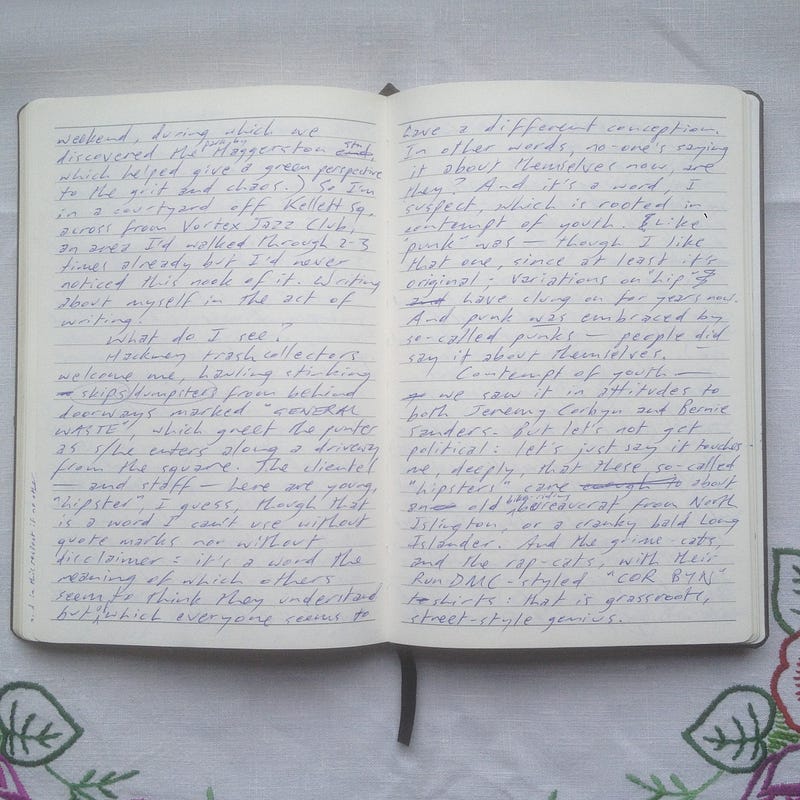 weekend, during which we
discovered the park by Haggerston stn,
which helped give a green perspective
to the grit and chaos.) So I'm
in a courtyard off Kellett Sq,
across from Vortex Jazz Club,
an area I'd walked through 2-3
times already but I'd never
noticed this nook of it. Writing
about myself in the act of
writing.
What do I see?
Hackney trash collectors
welcome me, hauling stinking
skips/dumpsters from behind
doorways marked "GENERAL
WASTE", which greet the punter
as s/he enters along a driveway
from the square. The clientel
— and staff — here are young,
"hipster", I guess, though that
is a word I can't use without
quote marks nor without
disclaimer: it's a word the
meaning of which others
seem to think they understand
but which everyone seems to
have a different conception.
In other words, no-one's saying
it about themselves now, are
they? And it's a word, I
suspect, which is rooted in
contempt of youth. Like
"punk" was — though I like
that one, since at least it's
original; variations on "hip"
have clung on for years now.
And punk was embraced by
so-called punks — people did
say it about themselves.
Contempt of youth —
we saw it in attitudes to
both Jeremy Corbyn and Bernie
Sanders. But let's not get
political: let's just say it touches
me, deeply, that these so-called
"hipsters" care enough to about
an old bike-riding bureaucrat from North
Islington, or a cranky bald Long
Islander. And the grime-cats,
and the rap-cats, with their
Run DMC-styled "COR BYN"
t-shirts: that is grassroots,
street-style genius.